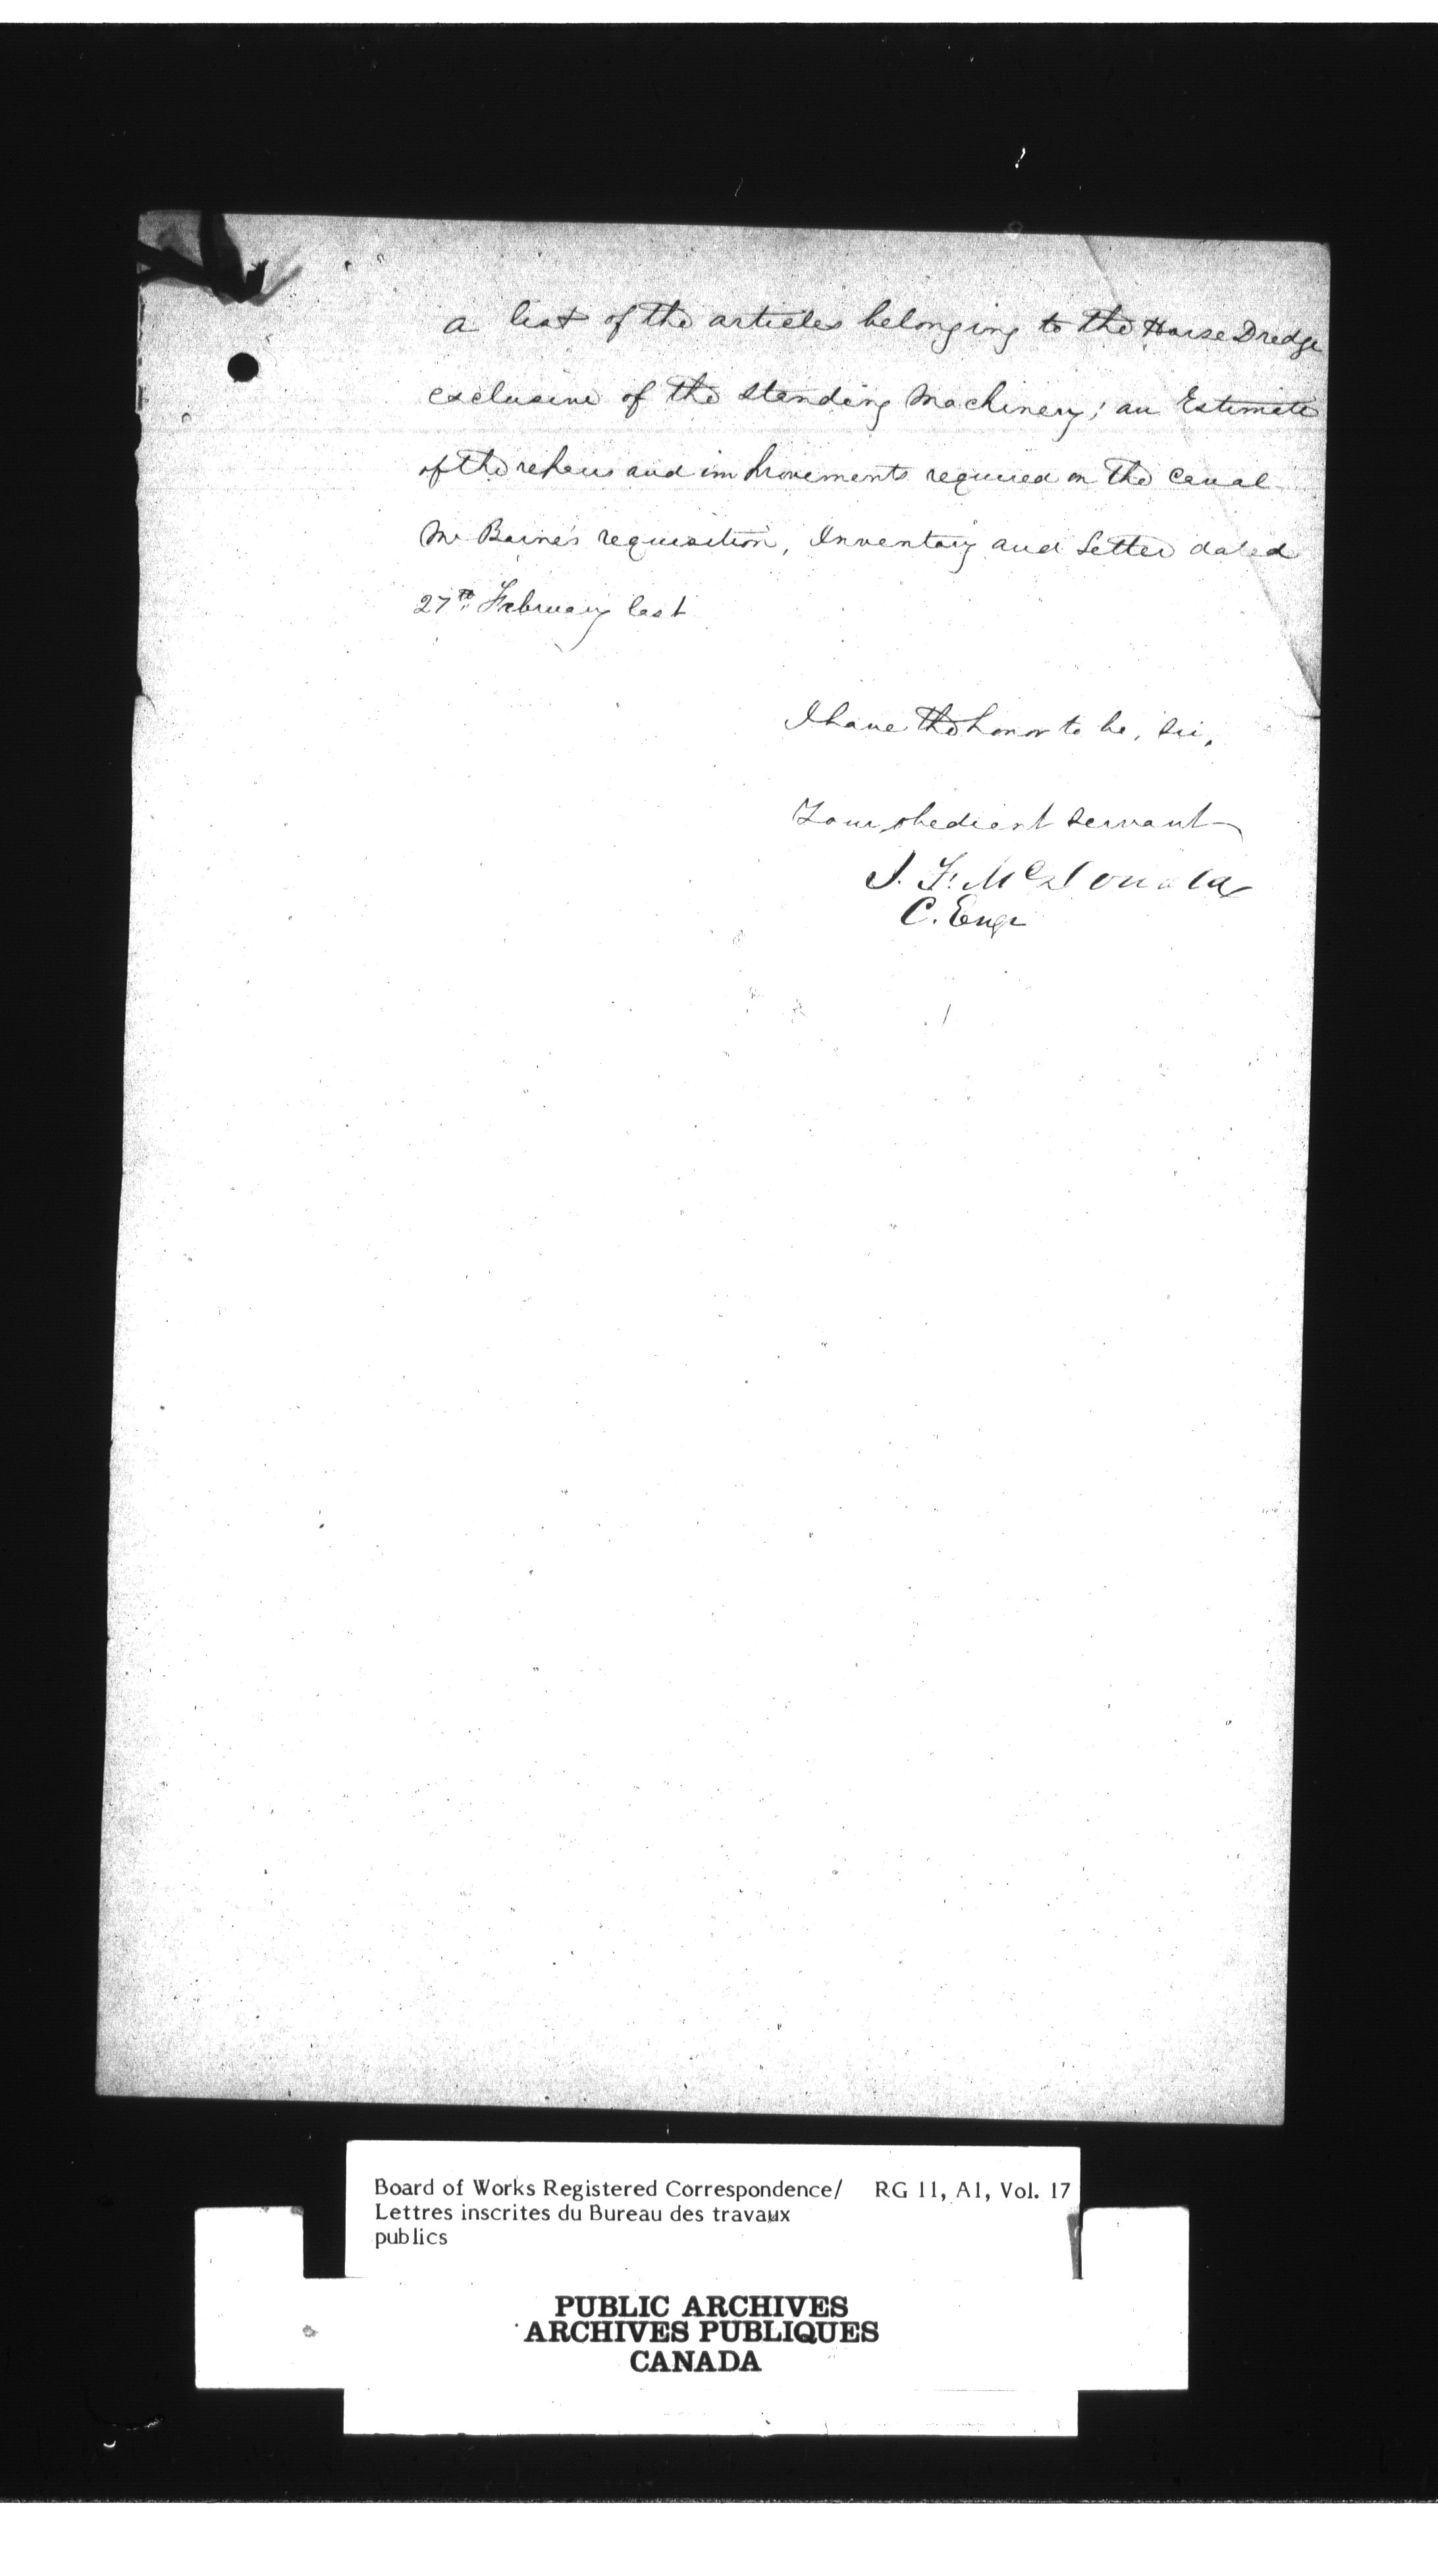 a list of the articles belonging to the Horse Dredge
exclusive of the standing Machinery; an Estimate
of the repairs and improvements required on the Canal
Mr Baine's requisition, Inventory and Letter dated
27th. February last
I have the honor to be, Sir,
Your obedient servant
J. F. McDonald
C. Engr
Board of Works Registered Correspondence/ RG 11, A1, Vol. 17
Lettres inscrites du Bureau des travaux
publics
PUBLIC ARCHIVES
ARCHIVES PUBLIQUES
CANADA